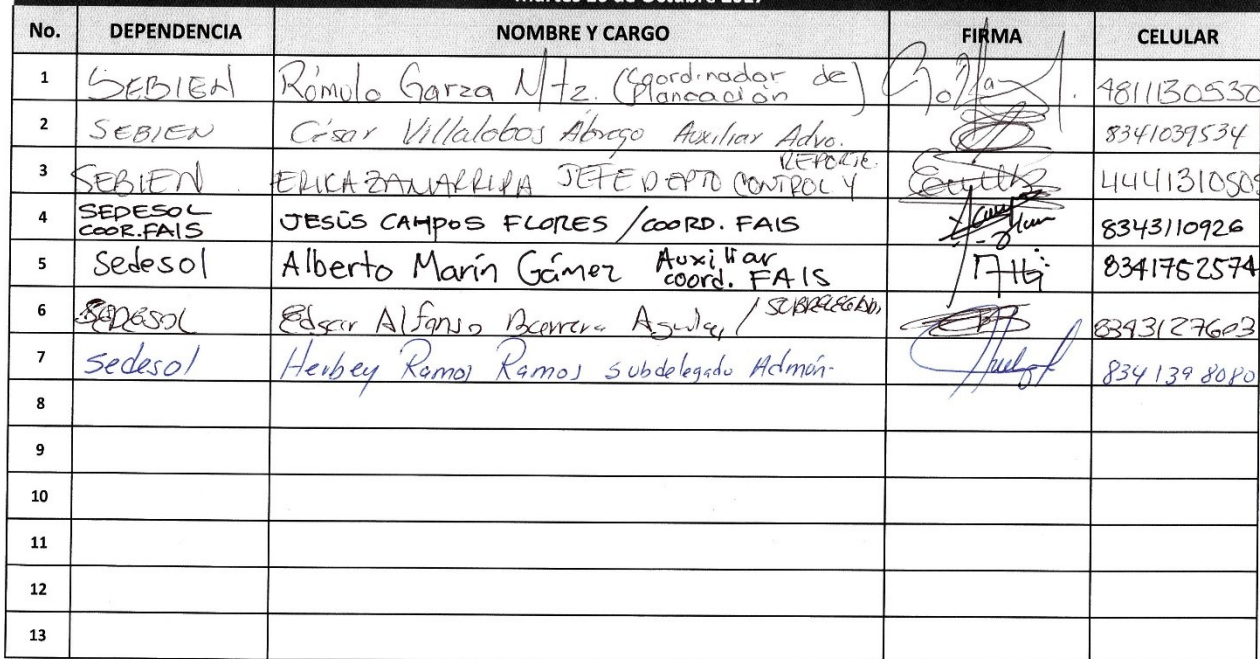 No. DEPENDENCIA NOMBRE Y CARGO FIRMA CELULAR
1 SEBIEN Rómulo Garza Mtz. (Coordinador de Planeación) 4811130530
2 SEBIEN César Villalobos Abrego Auxiliar Advo. 8341039534
3 SEBIEN ERIKA ZAMARRIPA JEFE DEPTO CONTROL Y REPORTE.
4 SEDESOL COOR.FAIS JESÚS CAMPOS FLORES / COORD. FAIS 8343110926
5 Sedesol Alberto Marín Gámez Auxiliar coord. FAIS 8341762574
6 SEDESOL Edgar Alfonso Barrera / SUBDELEGADO, 8343127603
7 Sedesol Herbey Ramos Ramos subdelegado Admón. 8341398080
8
9
10
11
12
13